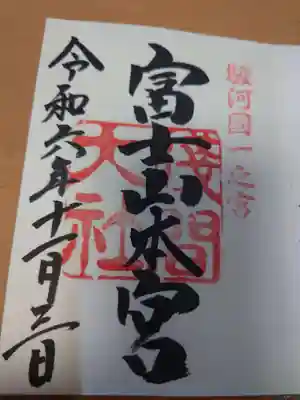 駿河國一之宮
富士山本宮
淺間
大社
令和六年十一月三日